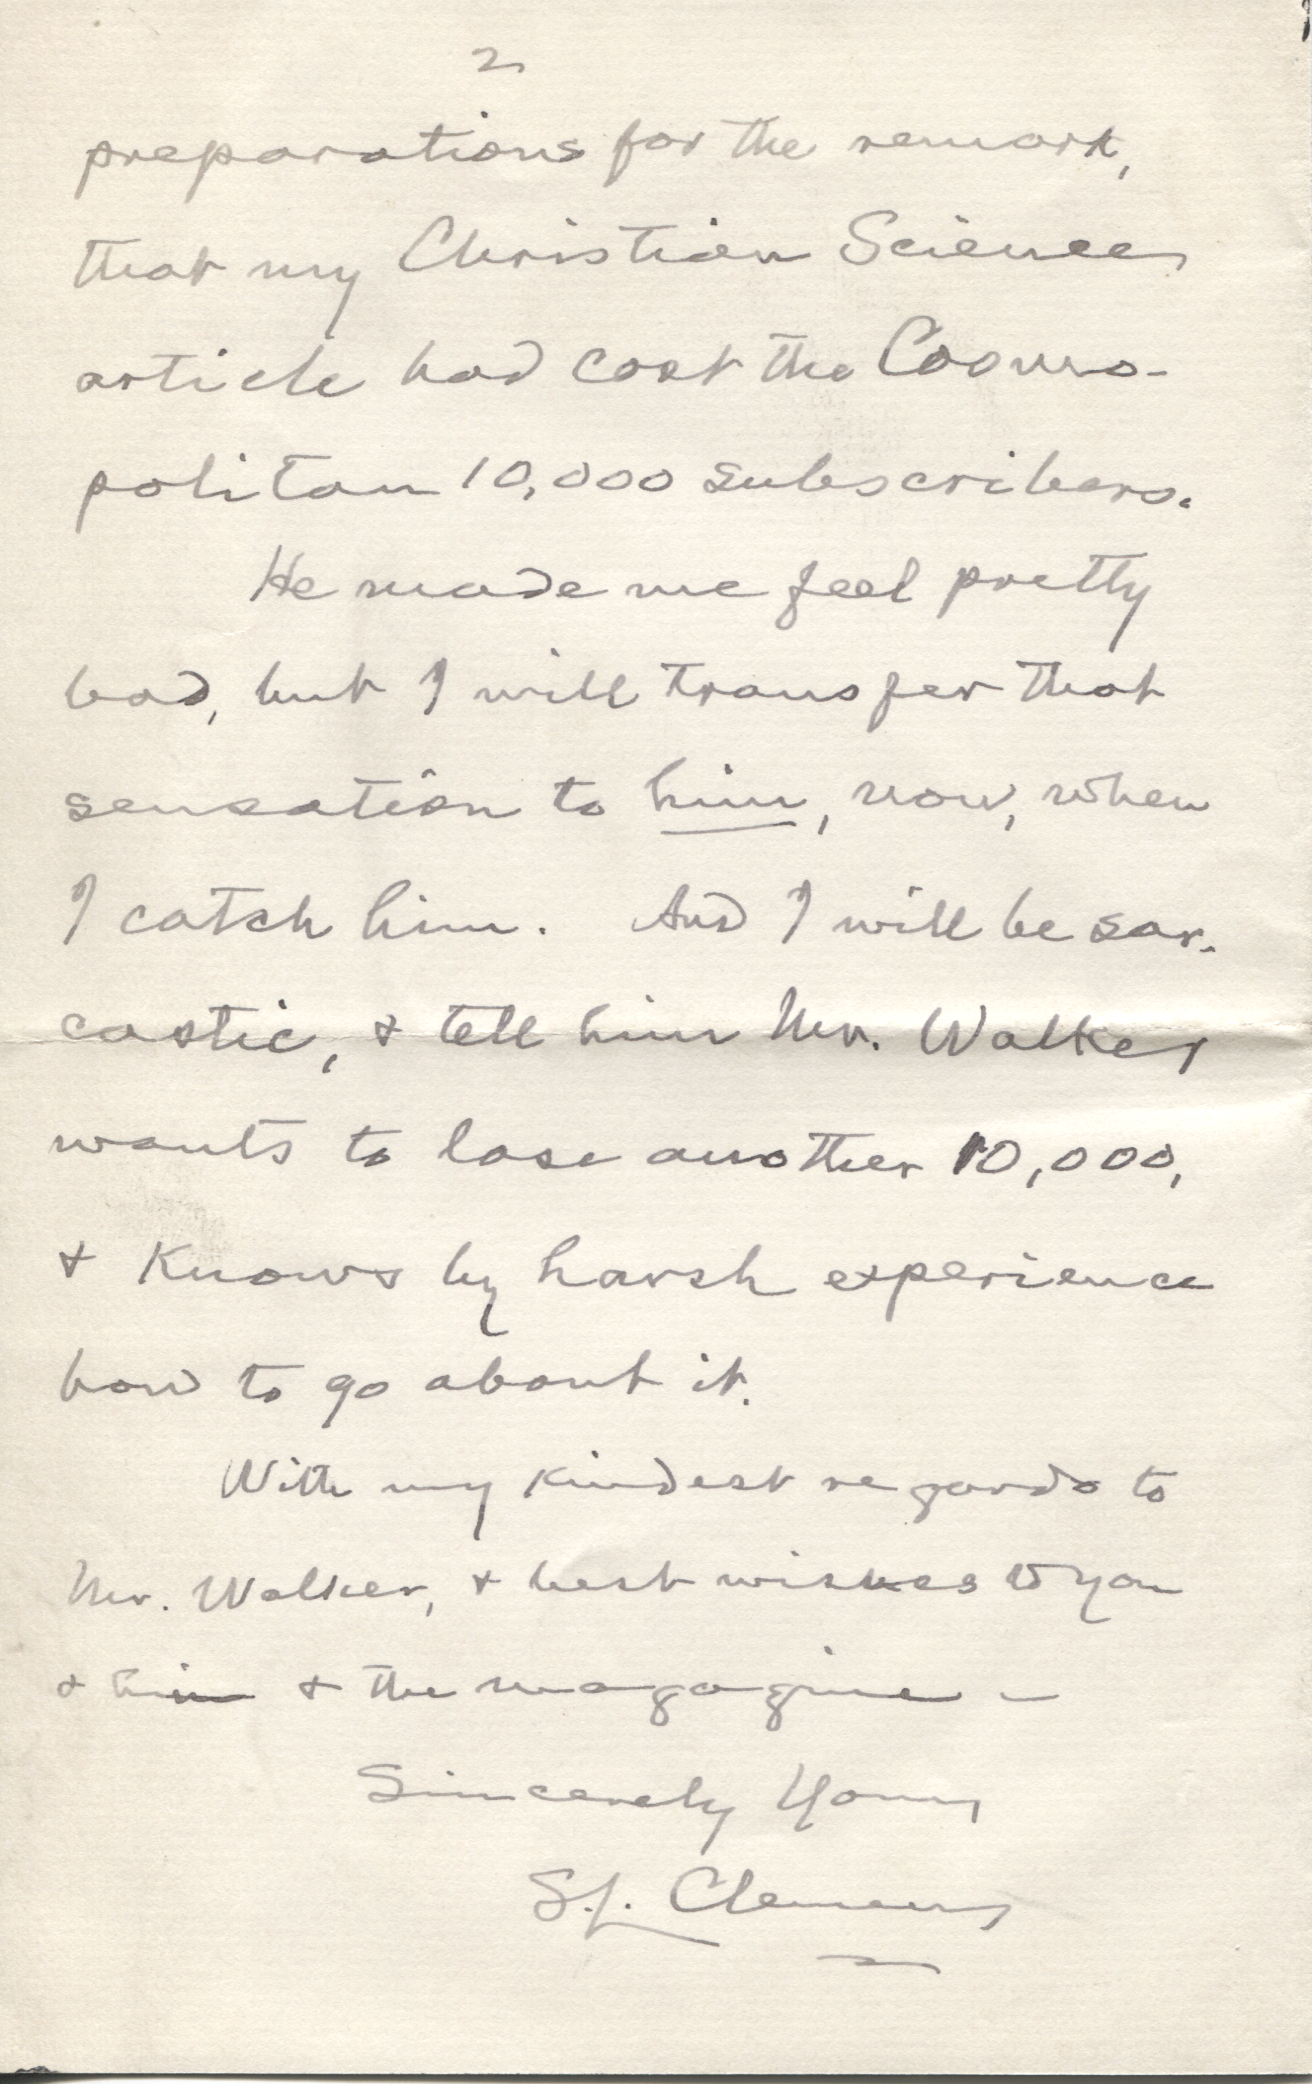 2
preparations for the remark,
that my Christian Science
article had cost the Cosmo-
politan 10,000 subscribers.
He made me feel pretty
bad, but I will transfer that
sensation to him, now, when
I catch him. And I will be sar-
castic, & tell him Mr. Walker
wants to lose another 10,000,
& knows by harsh experience
how to go about it.
With my kindest regards to
Mr. Walker, & best wishes to you
& him & the magazine —
Sincerely Yours
S. L. Clemens